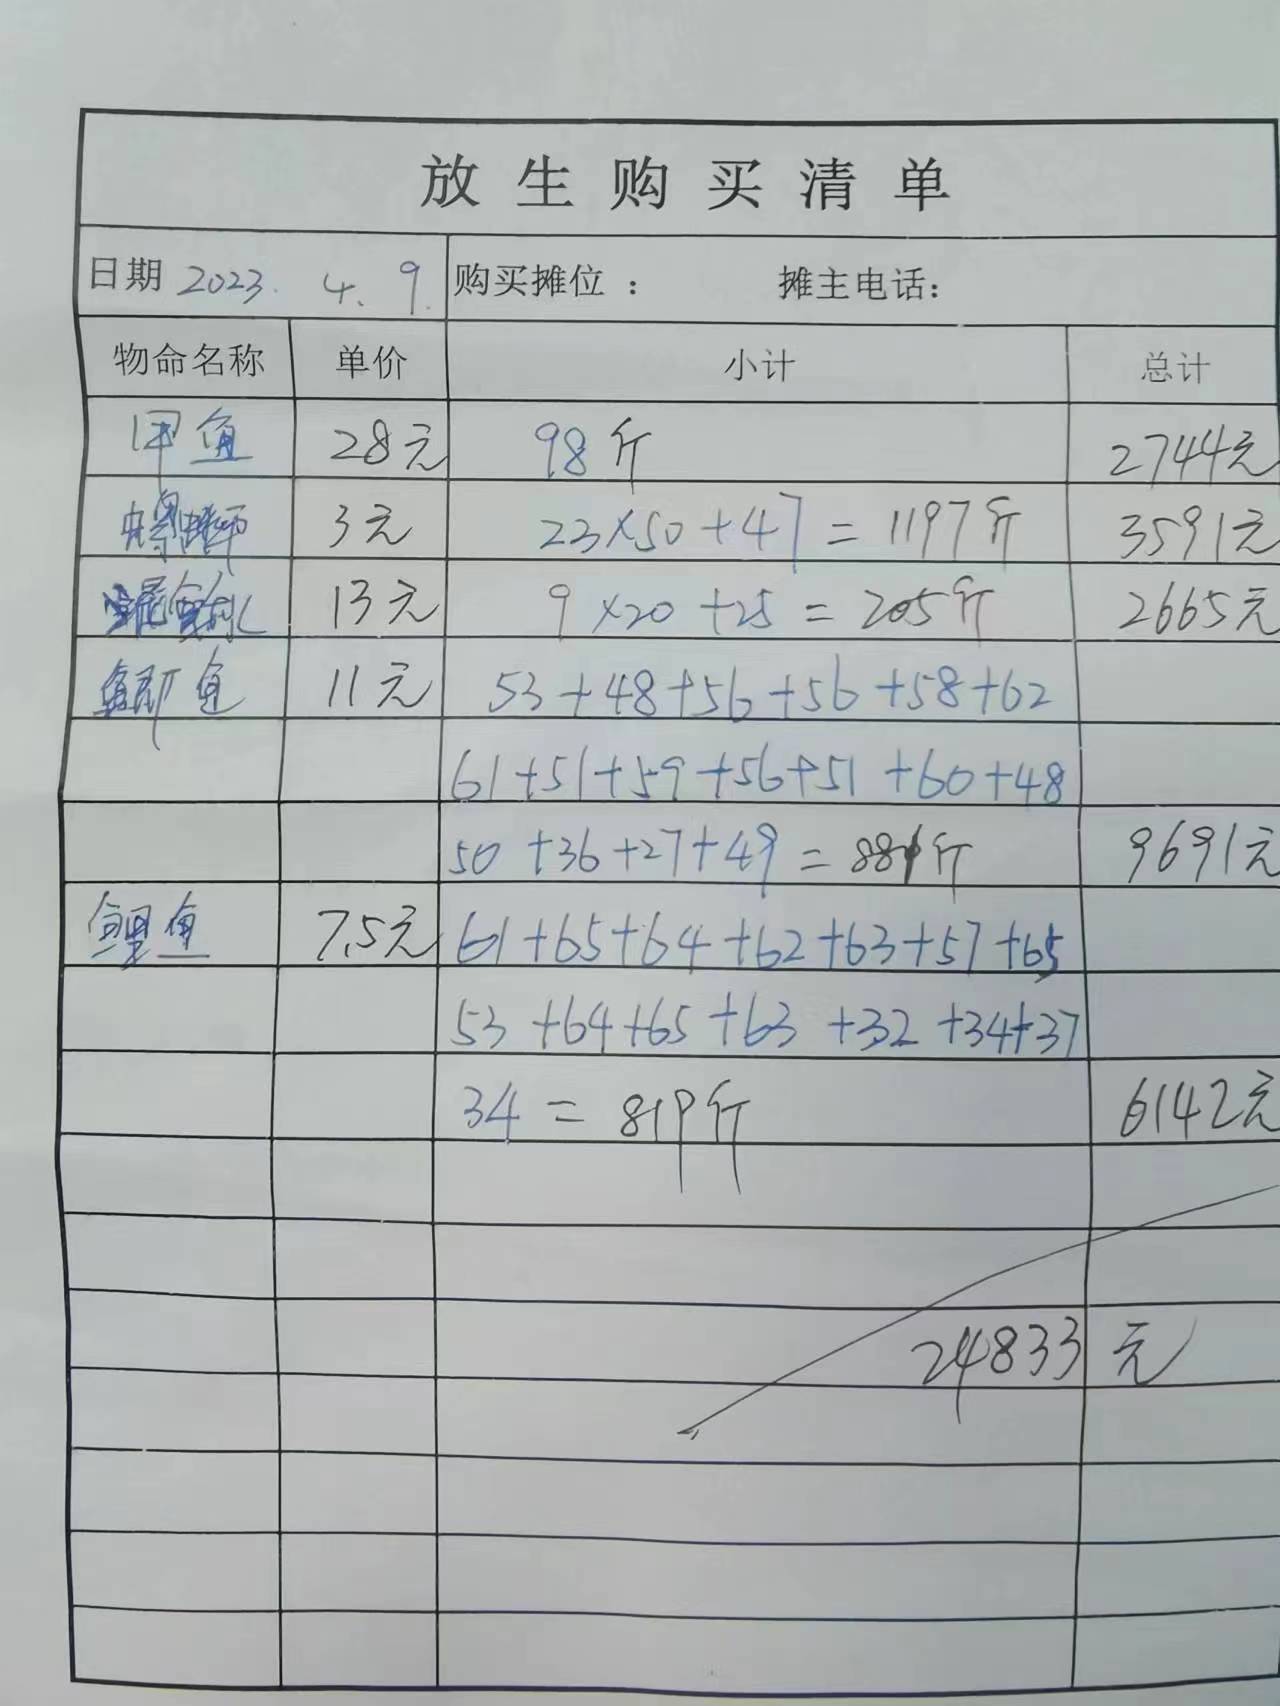 放生购买清单
日期 2023. 4. 9. 购买摊位 ： 摊主电话：
物命名称 单价 小计 总计
甲鱼 28元 98斤 2744元
螺蛳 3元 23×50+47=1197斤 3591元
13元 9×20+25=205斤 2665元
鲫鱼 11元 53+48+56+56+58+62
61+51+59+56+51+60+48
50+36+27+49=881斤 9691元
鲤鱼 7.5元 61+65+64+62+63+57+65
53+64+65+63+32+34+37
34=819斤 6142元
24833元